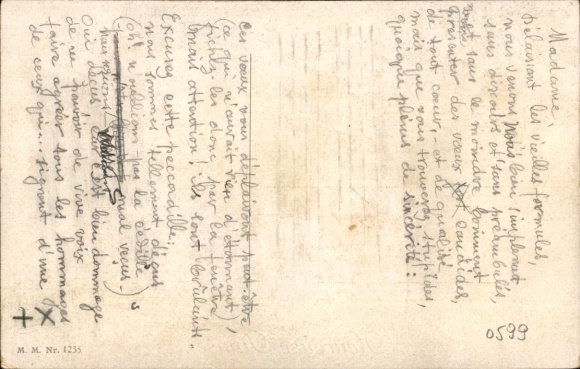 Madame,
Délaissant les vieilles formules,
nous venons Nous bien implorant
sans discours et sans préambules,
sans le moindre boniment
présenter des vœux candides,
de tout cœur et de qualité
mais que vous trouverez stupides,
quoique pleins de sincérité:
Ces vœux vous déplairont peut-être
(ce qui n'aurait rien d'étonnant),
fichez les donc par la fenêtre
(mais attention! ils sont brûlants.
Excusez cette peccadille:
nous sommes tellement déçus
(oh! n'oublions pas la cédille
mal vécus.)
Oui déçus c'est bien dommage
de ne pouvoir de vive voix
faire agréer tous les hommages
de ceux qui... signent d'une
+ X
0599
M. M. Nr. 1235